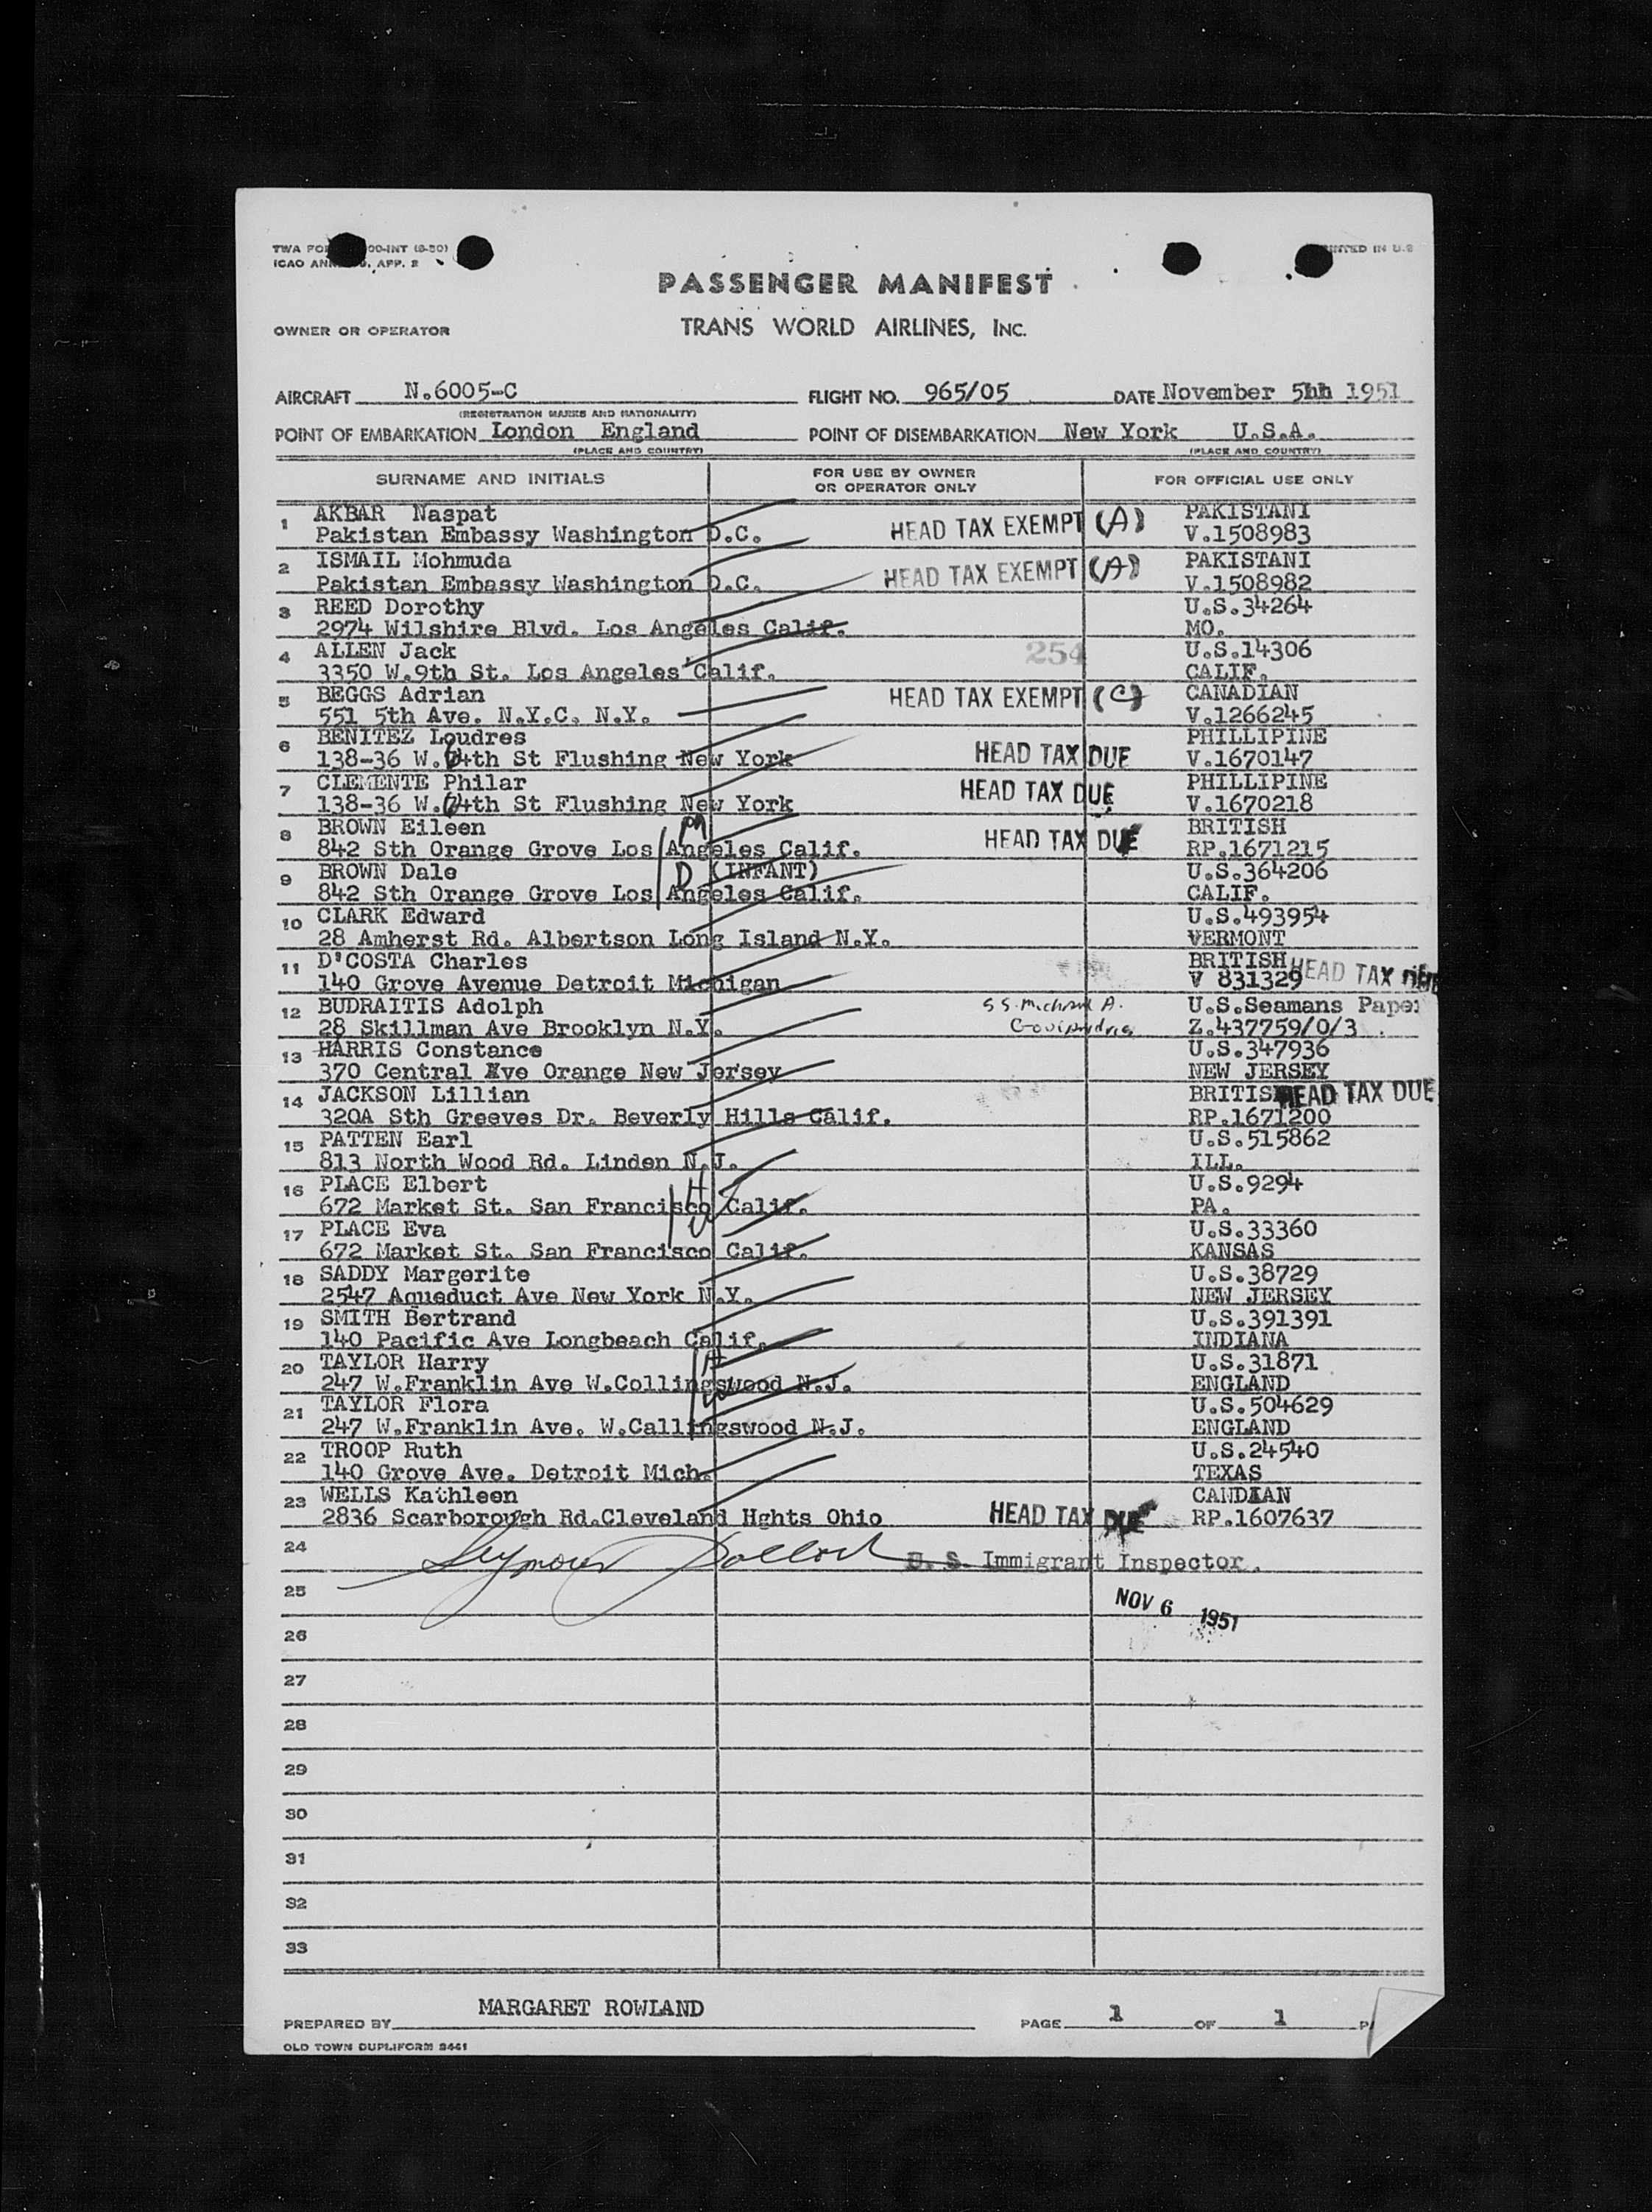 TWA FO 00-INT (8-50)
ICAO ANN 9, APP. 2
PRINTED IN U.S
PASSENGER MANIFEST
OWNER OR OPERATOR
TRANS WORLD AIRLINES, INC.
AIRCRAFT N.6005-C FLIGHT NO. 965/05 DATE November 5hh 1951
(REGISTRATION MARKS AND NATIONALITY)
POINT OF EMBARKATION London England POINT OF DISEMBARKATION New York U.S.A.
(PLACE AND COUNTRY) (PLACE AND COUNTRY)
SURNAME AND INITIALS FOR USE BY OWNER OR OPERATOR ONLY FOR OFFICIAL USE ONLY
1 AKBAR Naspat PAKISTANI
Pakistan Embassy Washington D.C. HEAD TAX EXEMPT (A) V.1508983
2 ISMAIL Mohmuda PAKISTANI
Pakistan Embassy Washington D.C. HEAD TAX EXEMPT (A) V.1508982
3 REED Dorothy U.S.34264
2974 Wilshire Blvd. Los Angeles Calif. MO.
4 ALLEN Jack 254 U.S.14306
3350 W.9th St. Los Angeles Calif. CALIF.
5 BEGGS Adrian HEAD TAX EXEMPT (C) CANADIAN
551 5th Ave. N.Y.C. N.Y. V.1266245
6 BENITEZ Loudres PHILLIPINE
138-36 W.64th St Flushing New York HEAD TAX DUE V.1670147
7 CLEMENTE Philar PHILLIPINE
138-36 W.64th St Flushing New York HEAD TAX DUE V.1670218
8 BROWN Eileen M BRITISH
842 Sth Orange Grove Los Angeles Calif. HEAD TAX DUE RP.1671215
9 BROWN Dale D (INFANT) U.S.364206
842 Sth Orange Grove Los Angeles Calif. CALIF.
10 CLARK Edward U.S.493954
28 Amherst Rd. Albertson Long Island N.Y. VERMONT
11 D'COSTA Charles BRITISH HEAD TAX DUE
140 Grove Avenue Detroit Michigan V 831329
12 BUDRAITIS Adolph S S. Michael A. U.S.Seamans Paper
28 Skillman Ave Brooklyn N.Y. Z.437759/0/3
13 HARRIS Constance U.S.347936
370 Central Ave Orange New Jersey NEW JERSEY
14 JACKSON Lillian BRITISH HEAD TAX DUE
320A Sth Greeves Dr. Beverly Hills Calif. RP.1671200
15 PATTEN Earl U.S.515862
813 North Wood Rd. Linden N.J. ILL.
16 PLACE Elbert H U.S.9294
672 Market St. San Francisco Calif. PA.
17 PLACE Eva W U.S.33360
672 Market St. San Francisco Calif. KANSAS
18 SADDY Margerite U.S.38729
2547 Aqueduct Ave New York N.Y. NEW JERSEY
19 SMITH Bertrand U.S.391391
140 Pacific Ave Longbeach Calif. INDIANA
20 TAYLOR Harry H U.S.31871
247 W.Franklin Ave W.Collingswood N.J. ENGLAND
21 TAYLOR Flora W U.S.504629
247 W.Franklin Ave. W.Callingswood N.J. ENGLAND
22 TROOP Ruth U.S.24540
140 Grove Ave. Detroit Mich. TEXAS
23 WELLS Kathleen CANDIAN
2836 Scarborough Rd.Cleveland Hghts Ohio HEAD TAX DUE RP.1607637
24 Seymour Pollock U. S. Immigrant Inspector.
25 NOV 6 1951
26
27
28
29
30
31
32
33
PREPARED BY MARGARET ROWLAND PAGE 1 OF 1
OLD TOWN DUPLIFORM 9461